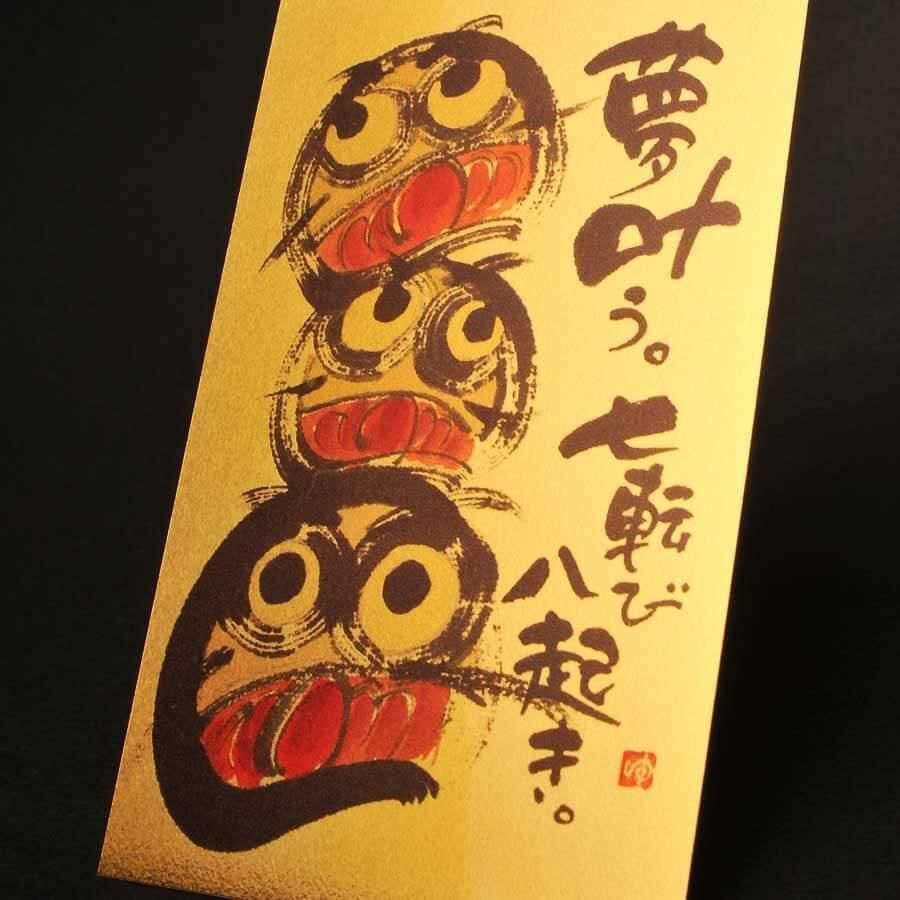 夢叶う。
七転び
八起き。
ゆ